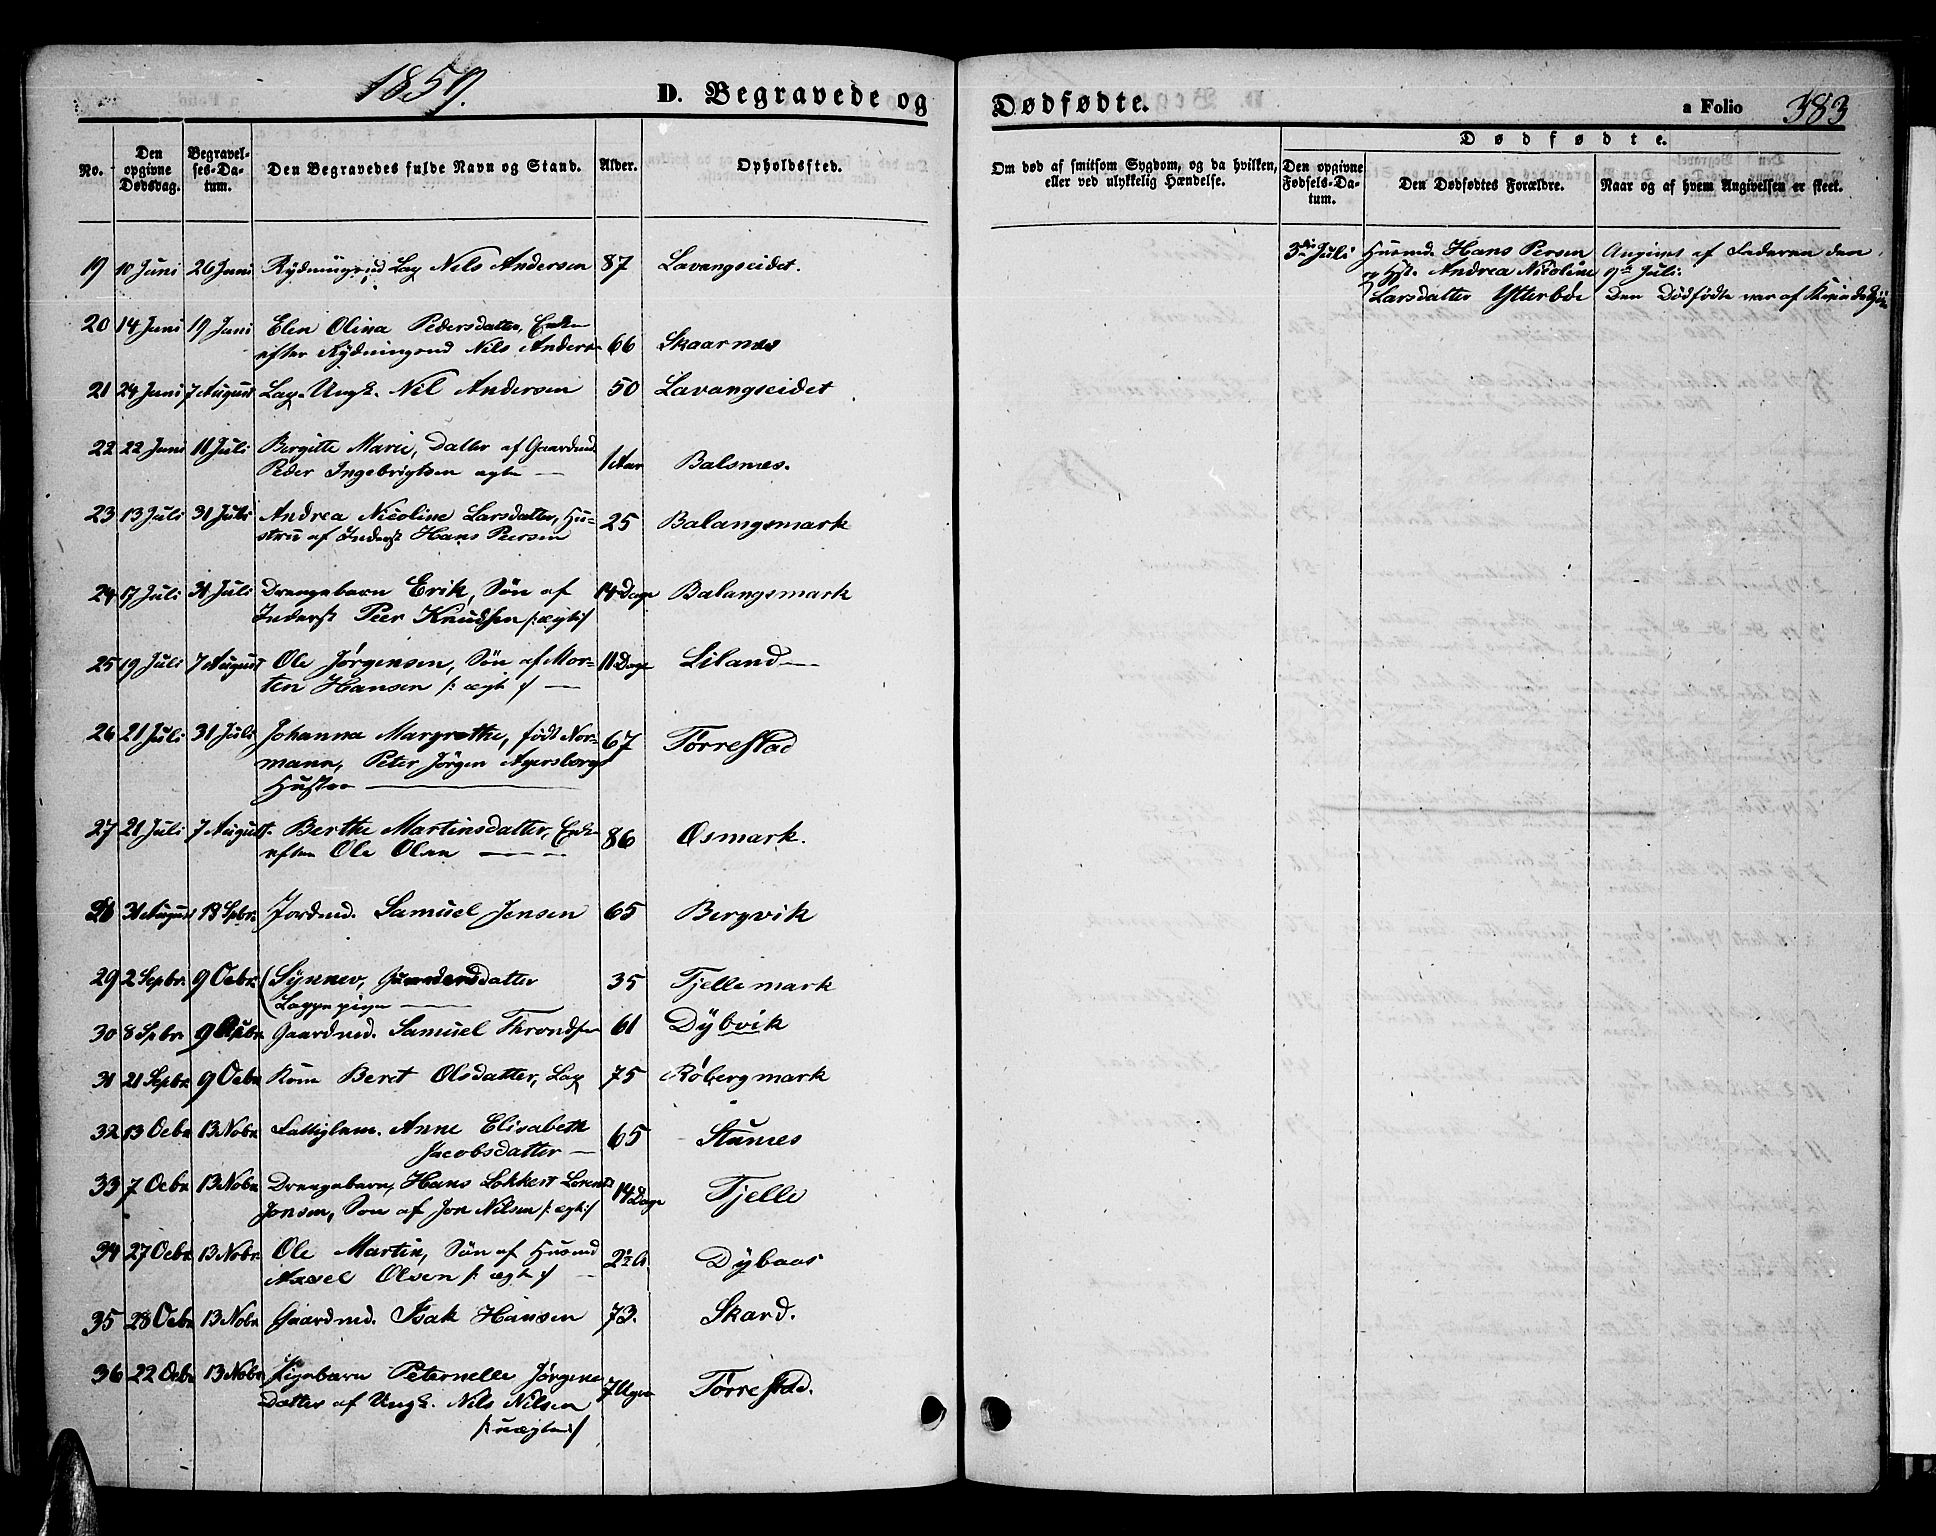 1859.
D. Begravede og
Dødfødte.
a Folio
383
Dødfødte.
No.
Den opgivne Dødsdag.
Begravelses-Datum.
Den Begravedes fulde Navn og Stand.
Alder.
Opholdssted.
Om død af smitsom Sygdom, og da hvilken, eller ved ulykkelig Hændelse.
Den opgivne Fødsels-Datum.
Den Dødfødtes Forældre.
Naar og af hvem Angivelsen er skeet.
19 10 Juni 26 Juni Rydningsmd Lap Nils Andersen 87 Lavangseidet.
20 14 Juni 19 Juni Elen Olina Pedersdatter, Enke
efter Rydningsmd Nils Anders 66 Skaarnes
21 24 Juni 7 August Lap. Ungk. Nil Andersen 50 Lavangseidet
22 22 Juni 11 Juli Birgitte Marie, Datter af Gaardmd.
Peder Ingebrigtsen ægte — 1 Aar Balsnes.
23 13 Juli 31 Juli Andrea Nicoline Larsdatter, Hu-
stru af Inderst Hans Persen 25 Balangsmark
24 17 Juli 31 Juli Drengebarn Erik, Søn af
Inderst Peer Knudsen /: ægte :/ 14 Dage Balangsmark
25 19 Juli 7 August Ole Jørgensen, Søn af Mor-
ten Hansen /: ægte :/ — 11 Dage Liland —
26 21 Juli 31 Juli Johanna Margrethe, født Nor-
mann, Peter Jørgen Agersborgs
Hustru — 67 Tørrestad
27 21 Juli 7 August. Berthe Martinsdatter, Enke
efter Ole Olsen — 86 Osmark.
28 31 August 18 Spbr. Jordmd. Samuel Jensen 65 Bergvik
29 2 Sepbr. 9 Octbr. Synnev, Gundersdatter
Lappepige — 35 Tjellemark
30 8 Spbr. 9 Octbr. Gaardmd. Samuel Throndsen 61 Dybvik
31 21 Sepbr. 9 Octbr. Kone Beret Olsdatter, Lap 75 Røbergmark
32 13 Octbr. 13 Nobr. Fattiglem. Anne Elisabeth
Jacobsdatter — 65 Stunes
33 7 Octbr. 13 Nobr. Drengebarn, Hans Lokkert Lorents
Jonsen, Søn af Jon Nilsen /: ægte :/ 14 Dage Tjelle
34 27 Octbr. 13 Nobr. Ole Martin, Søn af Husmd
Axel Olsen /: ægte :/ — 2½ A. Dybaas
35 28 Octbr. 13 Nobr. Gaardmd. Isak Hansen 73. Skard.
36 22 Octbr. 13 Nobr. Pigebarn Peternelle Jørgine
Datter af Ungk. Nils Nilsen
/: uægte :/ 7 Uger Tørrestad.
3die Juli Husmd. Hans Persen Angives af Faderen den
og Hst. Andrea Nicoline 9de Juli.
Larsdatter Ytterbøe Den Dødfødte var af Kvindekjøn